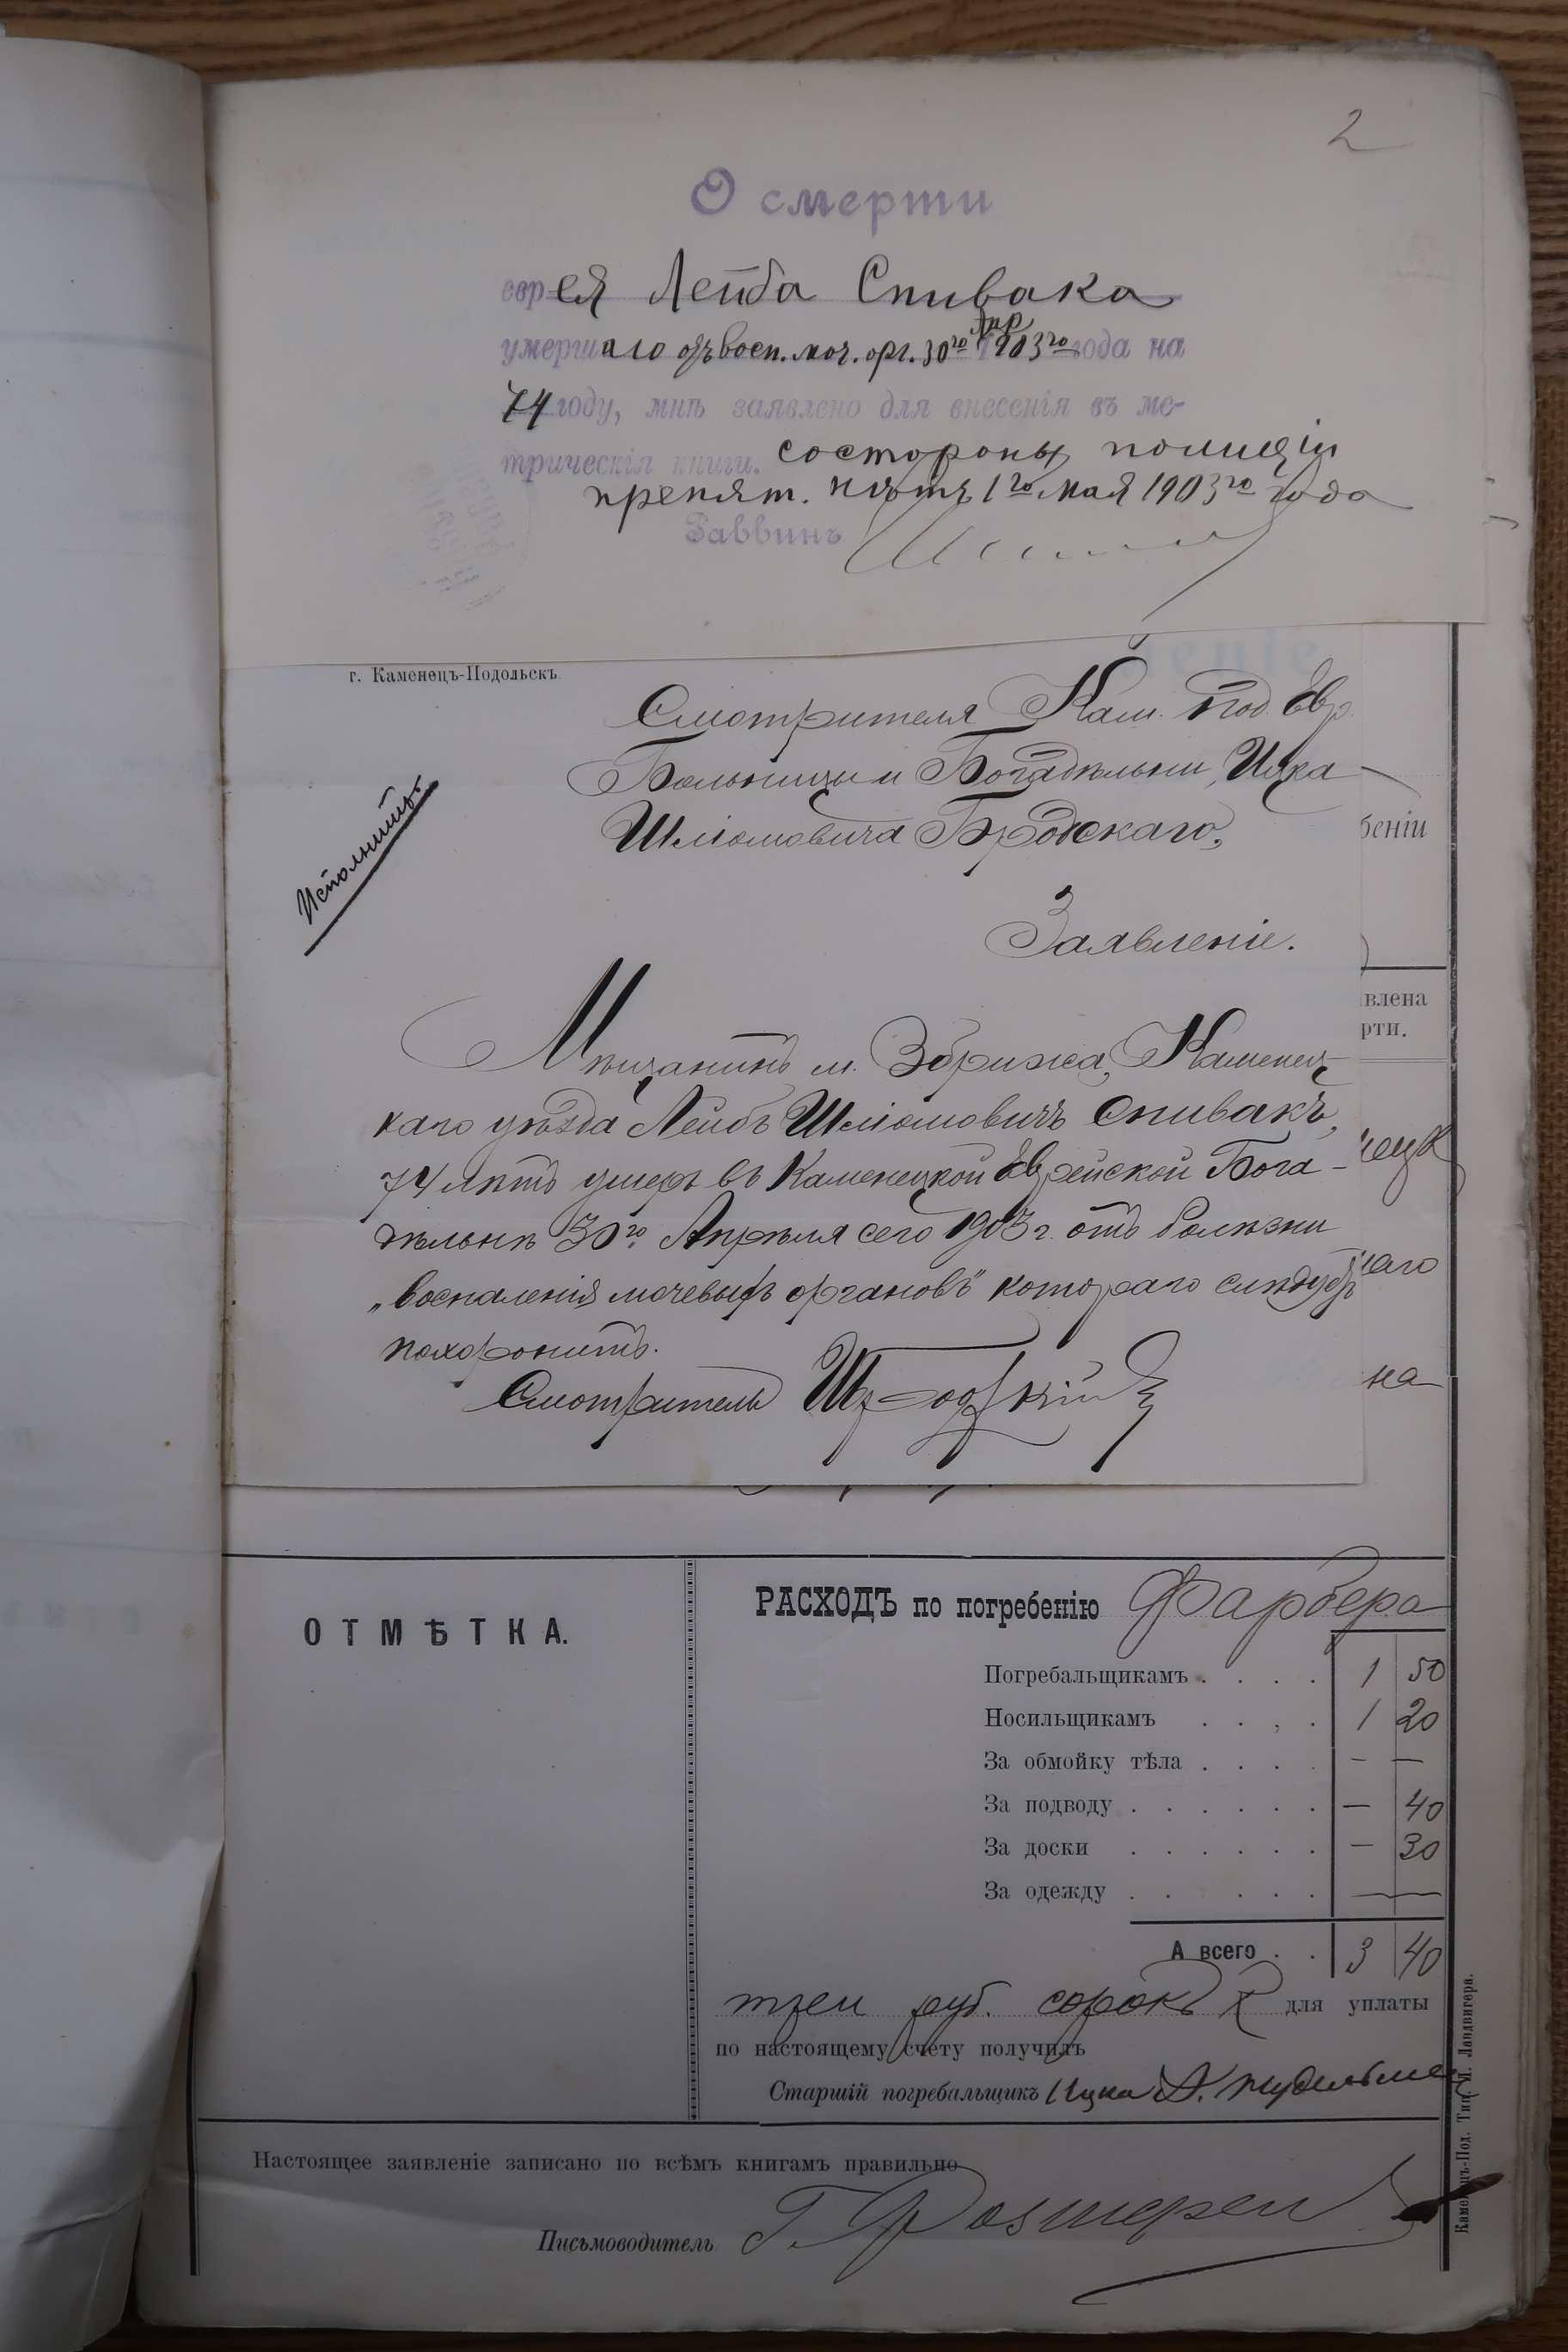 2
О смерти
еврея Лейба Спивака
Апр
умершаго отъ восп. моч. орг. 30го 1903го года на
74 году, мнѣ заявлено для внесенія въ ме-
трическія книги. состороны полиціи
препят. нѣтъ 1го мая 1903го года
Раввинъ
г. Каменецъ-Подольскъ
Смотрителя Кам. Под. Евр.
Больницы и Богадѣльни, Ицка
Шліомовича Бродскаго,
беніи
Исполнить
Заявленіе.
влена
рти.
Мѣщанинъ м. Збрижа, Каменец-
каго уѣзда Лейбъ Шліомовичъ Спивакъ,
74 лѣтъ умеръ въ Каменецкой Еврейской Бога-
дѣльнѣ 30го Апрѣля сего 1903 г. отъ болѣзни
„воспаленія мочевыхъ органовъ" котораго слѣдуетъ
похоронить.
Смотритель Бродскій
на
ОТМѢТКА.
РАСХОДЪ по погребенію Фарбера
Погребальщикамъ . . . . 1 50
Носильщикамъ . . , . 1 20
За обмойку тѣла . . . . — —
За подводу . . . . . . — 40
За доски . . . . . . — 30
За одежду . . . . . . —
А всего . . 3 40
три руб. сорокъ к для уплаты
по настоящему счету получилъ
Старшій погребальщикъ Ицка
Настоящее заявленіе записано по всѣмъ книгамъ правильно
Письмоводитель Г.
Каменецъ-Под. Тип. М. Ландвигера.